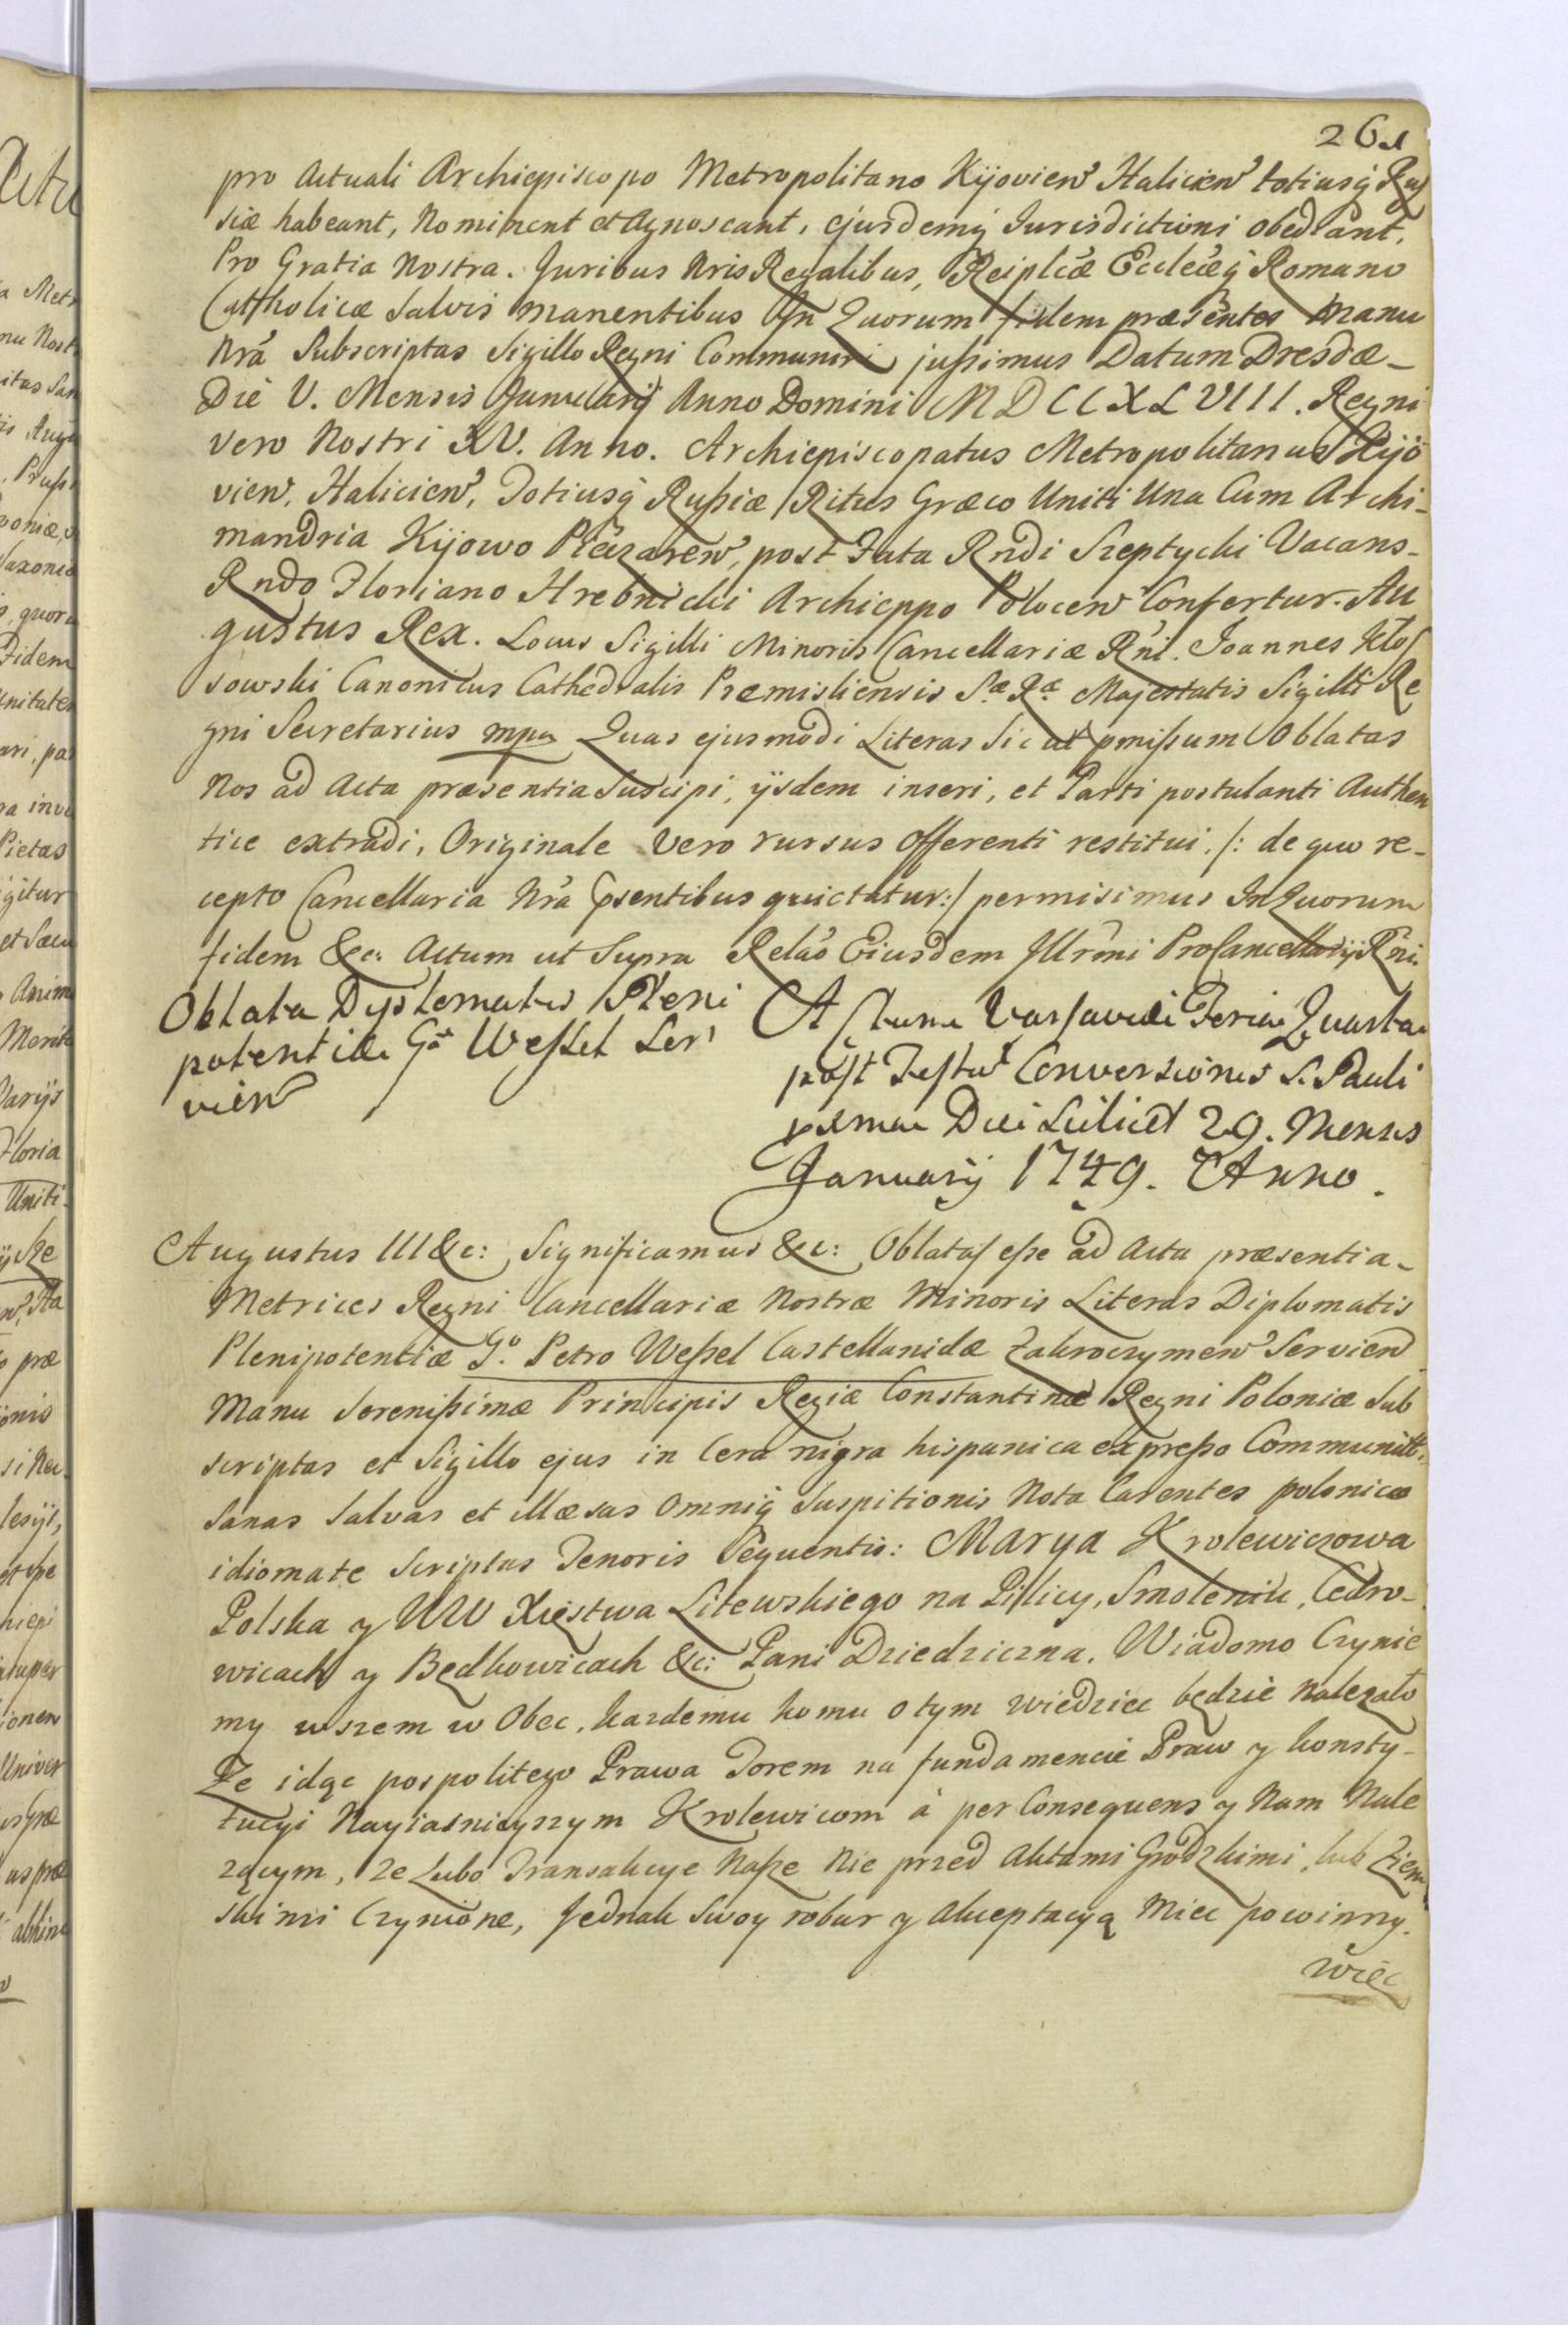 261
pro Actuali Archiepiscopo Metropolitano Kijovien Halicien totiusq Rus
siæ habeant, Nominent et Agnoscant, ejusdemq Jurisdictioni obediant.
Pro Gratia Nostra. Juribus Nris Regalibus, Reiplcæ Ecclecæq Romano
Catholicæ Salvis manentibus In Quorum fidem præsentes Manu
Nrâ Subscriptas Sigillo Regni Communiri jussimus Datum Dresdæ
Die V. Mensis Januarij Anno Domini MDCCXLVIII. Regni
vero Nostri XV. Anno. Archiepiscopatus Metropolitanus Kijo
vien, Halicien, Totiusq Russiæ Ritus Græco Uniti Una Cum Archi-
mandria Kijowo Pieczaren, post Fata Rndi Szeptycki Vacans
Rndo Floriano Hrebnicki Archieppo Polocen Confertur. Au
gustus Rex. Locus Sigilli Minoris Cancellariæ Rni. Joannes Kłos
sowski Canonicus Cathedralis Præmisliensis S.æ R.æ Majestatis Sigilli Re
gni Secretarius mpa Quas ejusmodi Literas Sicut pmissum Oblatas
Nos ad Acta præsentia Suscipi, ijsdem inseri, et Parti postulanti Authen
tice extradi, Originale Vero rursus Offerenti restitui /: de quo re-
cepto Cancellaria Nra psentibus quictatur :/ permisimus In Quorum
fidem &c. Actum ut Supra Relao Eiusdem Illrmi ProCancellarij Rni.
Oblata Dyplomatis Pleni
potentiæ Go Wessel Ser
vien
Actum Varsaviæ Feria Quarta
post Festum Conversionis S. Pauli
pxima Die Scilicet 29. Mensis
Januarij 1749. Anno.
Augustus III &c: Significamus &c: Oblatas esse ad Acta præsentia
Metrices Regni Cancellariæ Nostræ Minoris Literas Diplomatis
Plenipotentiæ Go. Petro Wessel Castellanidæ Zakroczymen Servien
Manu Serenissimæ Principis Regiæ Constantinæ Regni Poloniæ Sub
scriptas et Sigillo ejus in Cera nigra hispanica expresso Communitt:
Sanas Salvas et illæsas Omniq Suspitionis Nota Carentes polonico
idiomate Scriptas Tenoris Sequentis: Marya Krolewiczowa
Polska y WW Xięstwa Litewskiego na Pilicy, Smoleniu, Cedro-
wicach y Będkowicach &c: Pani Dziedziczna. Wiadomo Czynie
my wszem w Obec, kazdemu komu o tym wiedziec będzie nalezało
Ze idąc pospolitego Prawa Torem na fundamencie Praw y konsty-
tucyi Nayiasnieyszym Krolewicom à per Consequens y Nam Nale
zącym, ze Lubo Transakcye Nasze Nie przed Aktami Grodzkimi, lub Ziem
skimi Czynione, Jednak Swoy robur y Akceptacyą Miec powinny.
więc